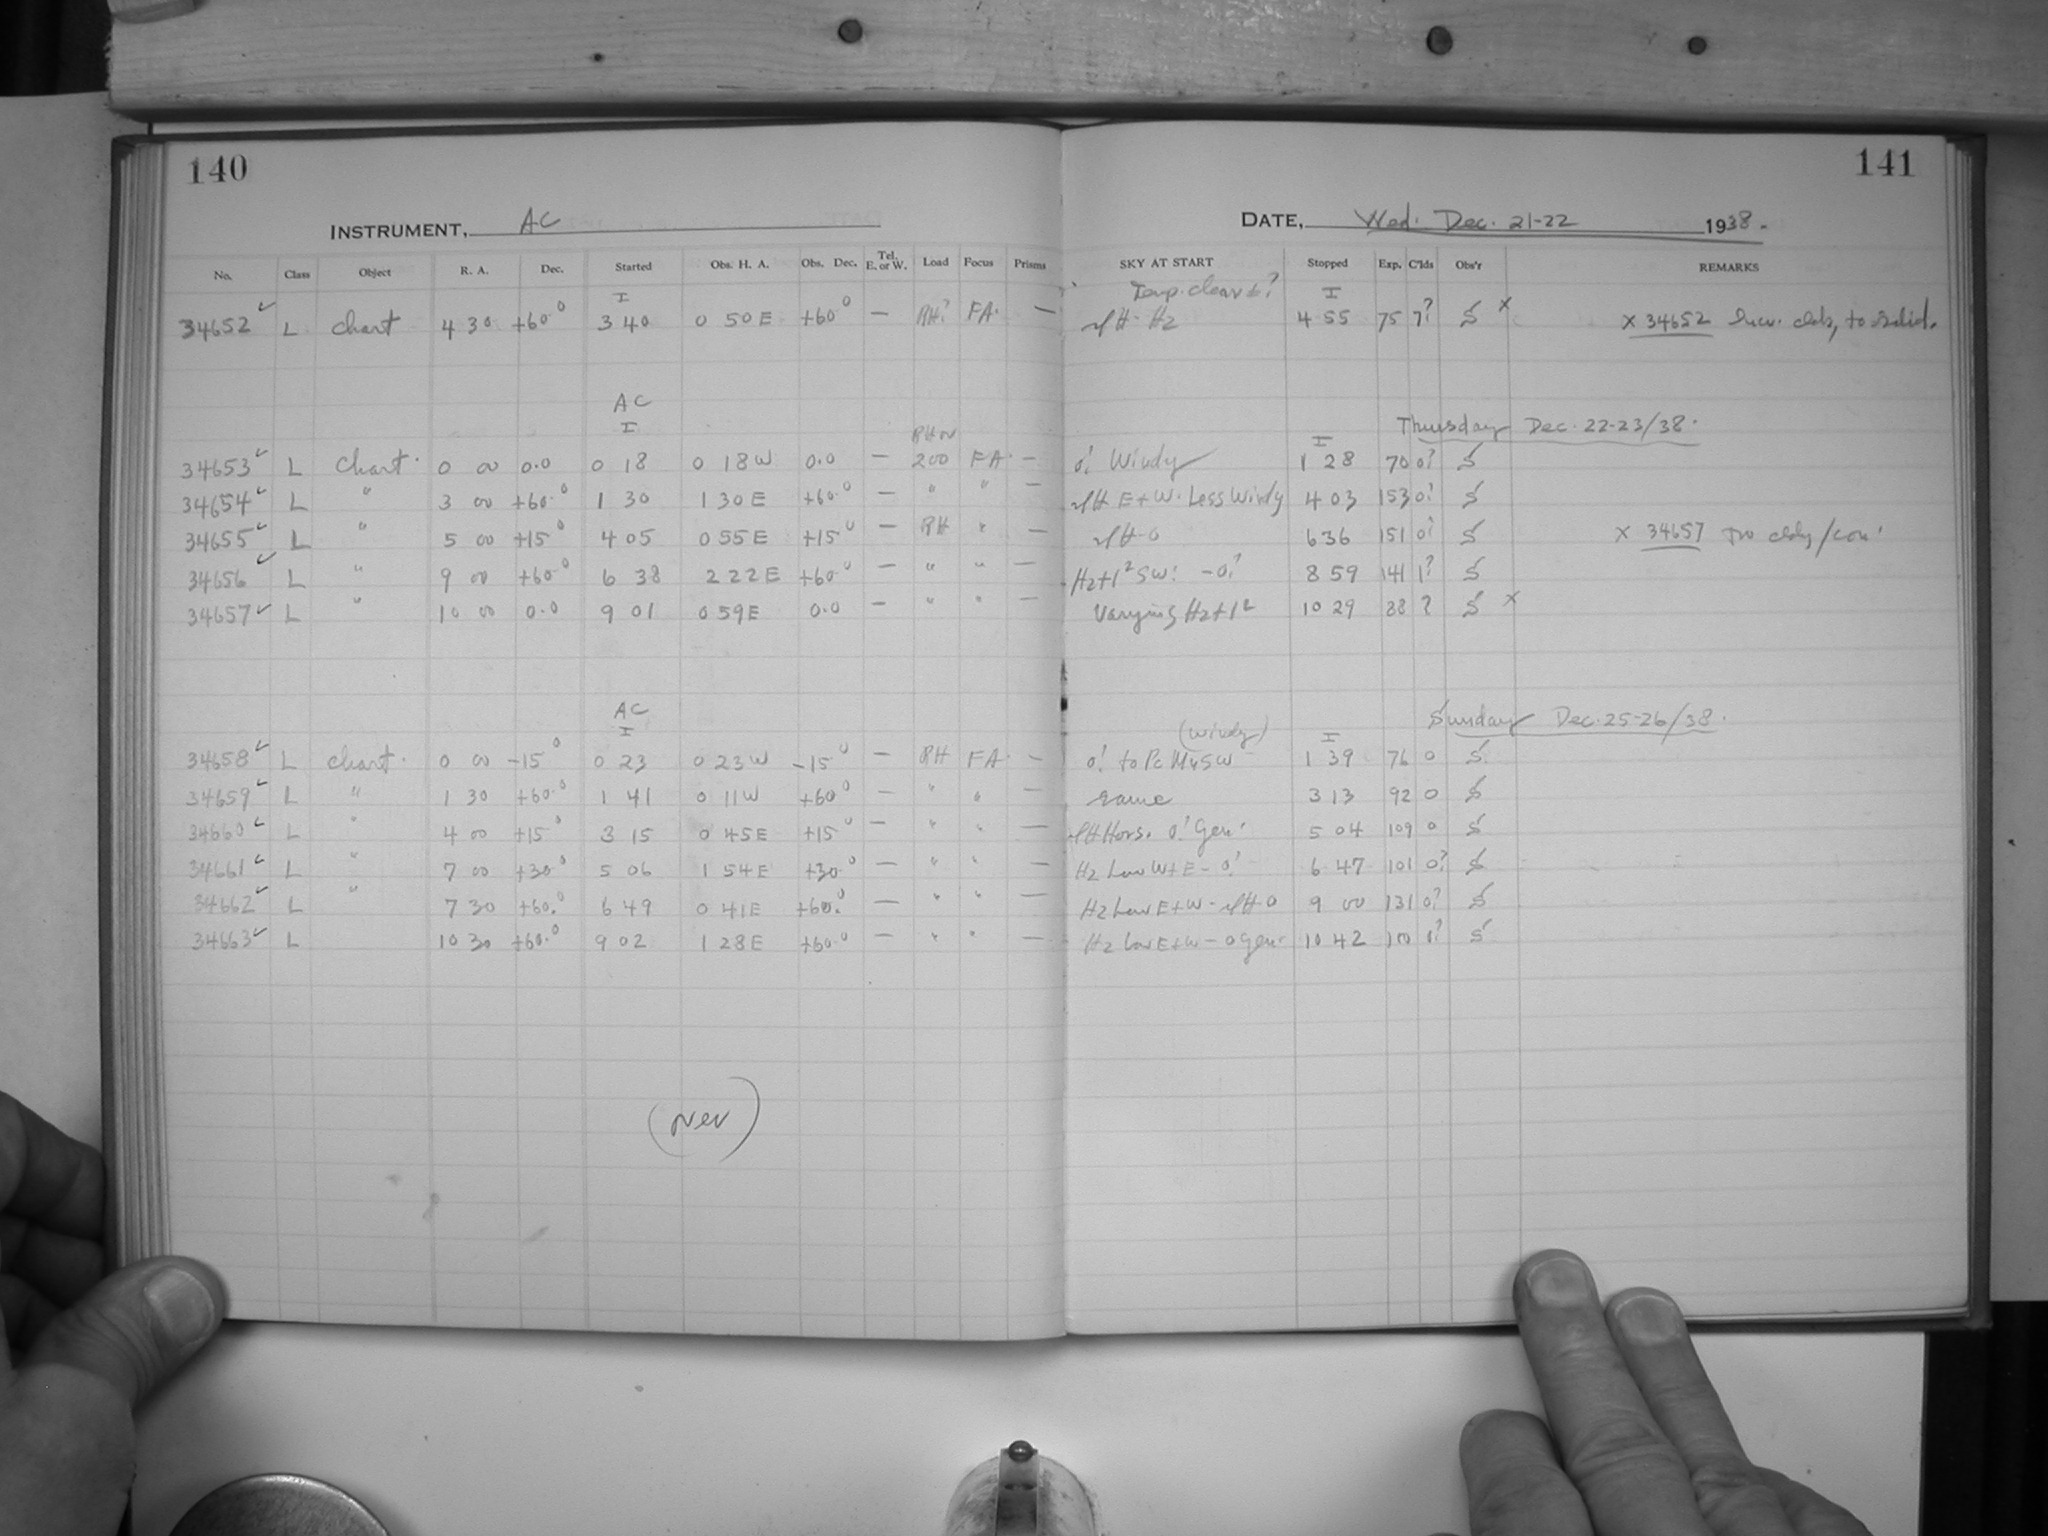 140
INSTRUMENT, AC
No. Class Object R. A. Dec. Started Obs. H. A. Obs. Dec. Tel. E. or W. Load Focus Prisms
I
34652 ✓ L Chart 4 30 +60.0 3 40 0 50 E +60.0 — RH? FA. —
AC
I
34653 ✓ L Chart. 0 00 0.0 0 18 0 18 W 0.0 — RH 200 FA. —
34654 ✓ L " 3 00 +60.0 1 30 1 30 E +60.0 — " " —
34655 ✓ L " 5 00 +15.0 4 05 0 55 E +15.0 — RH " —
34656 ✓ L " 9 00 +60.0 6 38 2 22 E +60.0 — " " —
34657 ✓ L " 10 00 0.0 9 01 0 59 E 0.0 — " " —
AC
I
34658 ✓ L Chart. 0 00 -15.0 0 23 0 23 W -15.0 — RH FA. —
34659 ✓ L " 1 30 +60.0 1 41 0 11 W +60.0 — " " —
34660 ✓ L " 4 00 +15.0 3 15 0 45 E +15.0 — " " —
34661 ✓ L " 7 00 +30.0 5 06 1 54 E +30.0 — " " —
34662 ✓ L " 7 30 +60.0 6 49 0 41 E +60.0 — " " —
34663 ✓ L 10 30 +60.0 9 02 1 28 E +60.0 — " " —
(over)
141
DATE, Wed. Dec. 21-22 1938.
SKY AT START Stopped Exp. C'lds Obs'r REMARKS
Temp. clear ?
I
H - Hz 4 55 75 7? S x x 34652 cldy to solid.
Thursday Dec. 22-23/38.
I
0? Windy 1 28 70 0? S
H E+W. Less Windy 4 03 153 0? S
H-0 6 36 151 0? S x 34657 cldy/con.
Hz+1² SW. -0? 8 59 141 1? S
Varying Hz+1² 10 29 88 ? S x
Sunday Dec. 25-26/38.
(Windy)
I
0? to SW 1 39 76 0 S
same 3 13 92 0 S
H Hors. 0? Gen. 5 04 109 0 S
Hz Low W+E - 0? 6 47 101 0? S
Hz Low E+W - H 0 9 00 131 0? S
Hz Low E+W - 0 Gen. 10 42 100 0? S